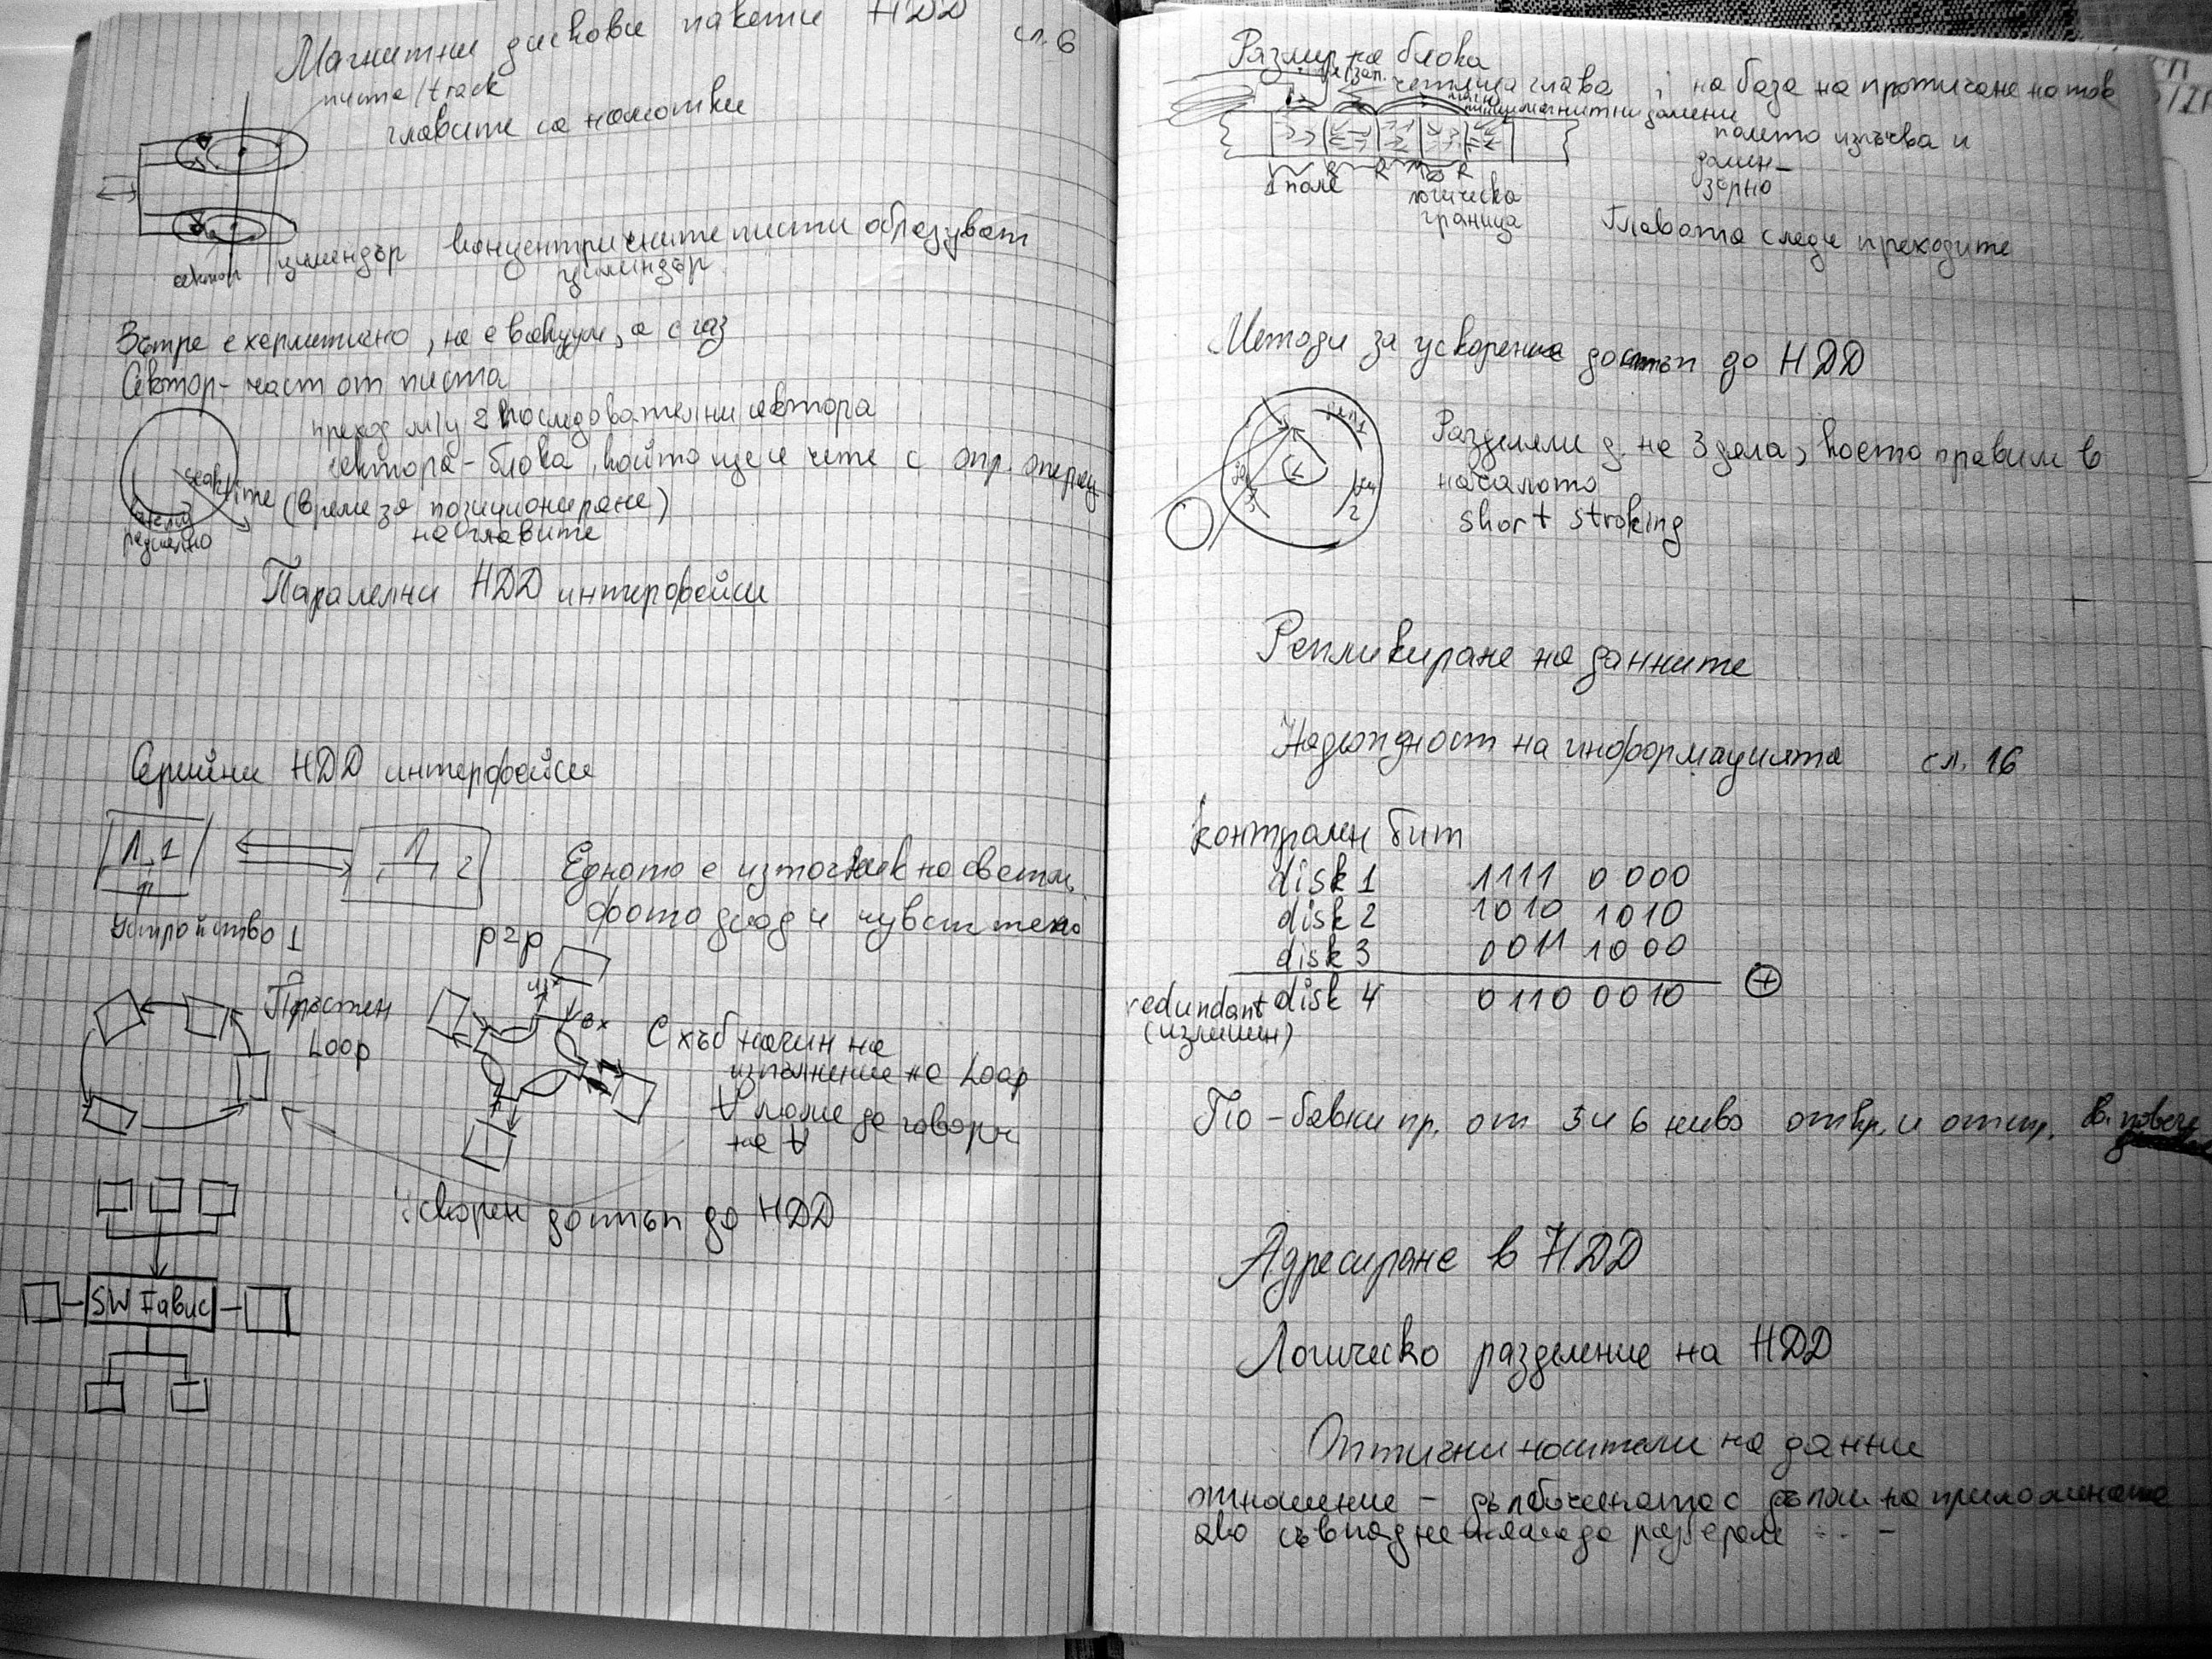 Магнитни дискови пакети HDD сл. 6
писта/track
главите са намотки
сектор
цилиндър концентричните писти образуват
цилиндър
Вътре е херметично, не е вакуум, а с газ
Сектор - част от писта
преход м/у 2 последователни сектора
сектора - блока, който ще се чете с опр. операц.
seak time (време за позициониране)
на главите
радиално
Паралелни HDD интерфейси
Серийни HDD интерфейси
Л. 1
Л 2
Едното е източник на светл.
фотодиод и чувствено
Устройство 1
p2p
Пръстен
Loop
вх
С хъб начин на
изпълнение на Loop
∀ може да говори
на ∀
Ускорен достъп до HDD
SW Fавис
Размер на блока
четяща глава ; на база на протичане на ток
магнитни домени
полето изпъква и
домен-
зърно
1 поле
логическа
граница
Главата следи преходите
Методи за ускорение достъп до HDD
Разделяли д. на 3 дяла, което правим в
началото
short stroking
Репликиране на данните
Надеждност на информацията сл. 16
контролен бит
disk 1 1111 0000
disk 2 1010 1010
disk 3 0011 1000
redundant disk 4 0110 0010
(излишен)
По-бавни пр. от 5 и 6 ниво
Адресиране в HDD
Логическо разделение на HDD
Оптични носители на данни
отношение - дълбочината с
ако съвпадне няма да разберем